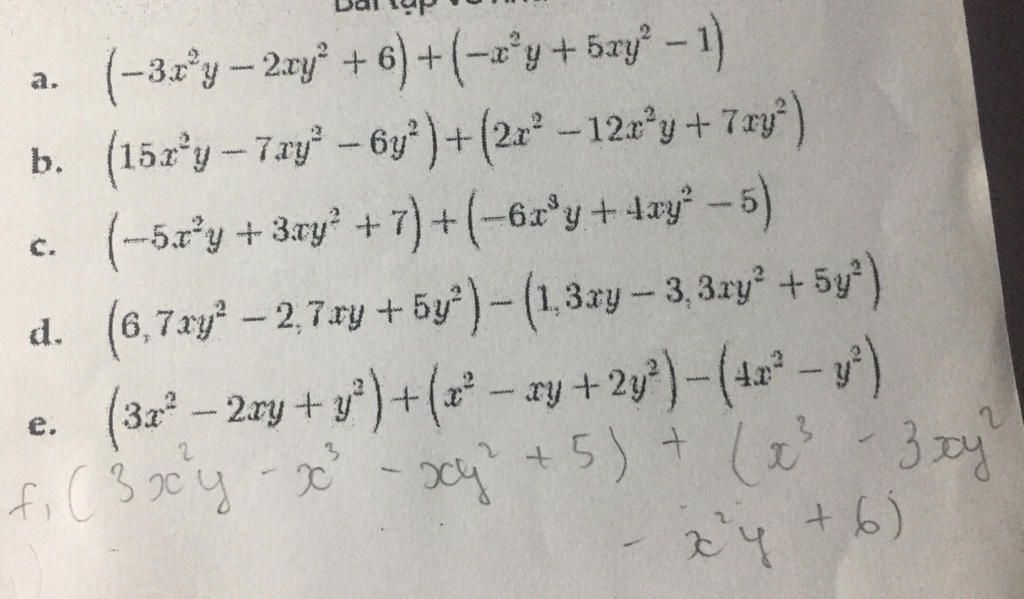 Bài tập về
a. (−3x²y − 2xy² + 6) + (−x²y + 5xy² − 1)
b. (15x²y − 7xy² − 6y²) + (2x² − 12x²y + 7xy²)
c. (−5x²y + 3xy² + 7) + (−6x³y + 4xy² − 5)
d. (6,7xy² − 2,7xy + 5y²) − (1,3xy − 3,3xy² + 5y²)
e. (3x² − 2xy + y²) + (x² − xy + 2y²) − (4x² − y²)
f, (3x²y − x³ − xy² + 5) + (x³ − 3xy²
− x²y + 6)